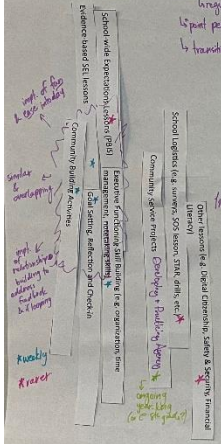 Other lessons (e.g. Digital Citizenship, Safety & Security, Financial
Literacy)
School Logistics (e.g. surveys, SOS lesson, STAR, drills, etc.)
Community Service Projects
Developing & Practicing Agency
ongoing
year long
Executive Functioning Skill Building (e.g. organization, time
management, notetaking skills)
Goal Setting, Reflection and Check-in
School-wide Expectations Lessons (PBIS)
Community Building Activities
Evidence-based SEL lessons
similar
& overlapping
impt.
relationship
building to
address
feedback
& looping
*weekly
*rarer